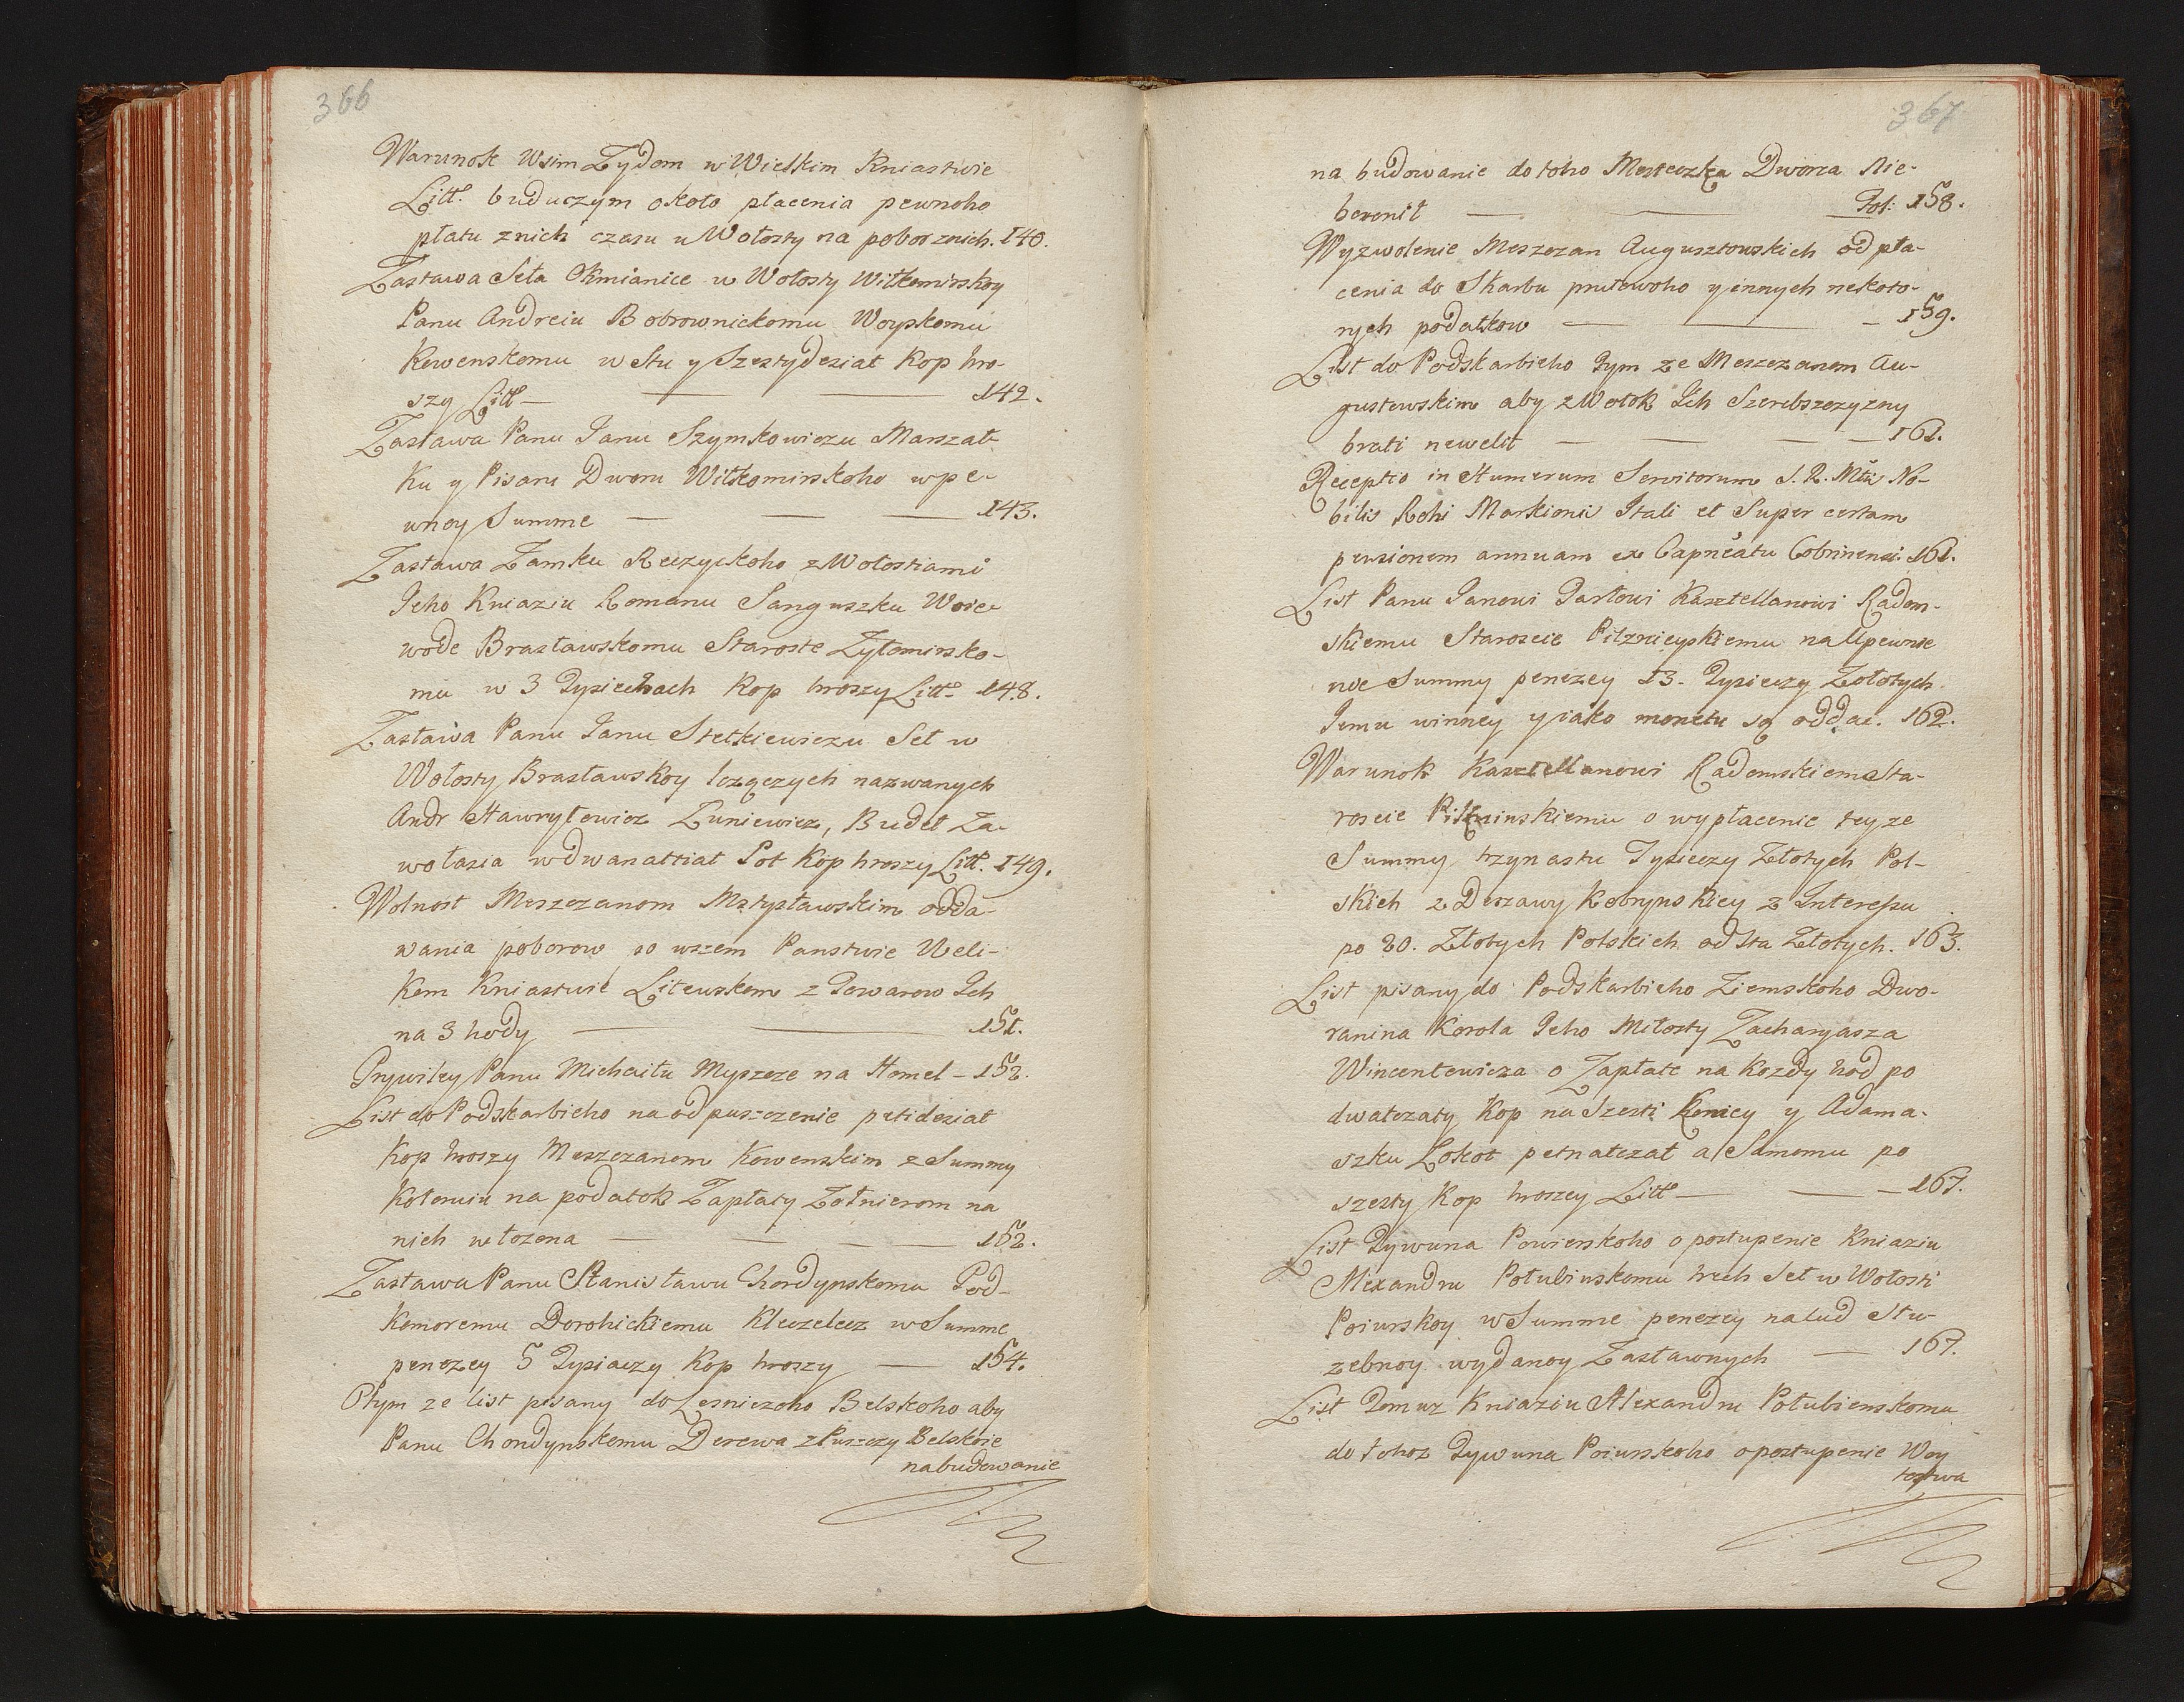 366
Warunok Wsim Zydom w Wielkim Kniastwie
Litt. buduczym około płacenia pewnoho
płatu znich czasu u Wołosty na poborznich. 140.
Zastawa Seła Okmianice w Wołosty Wiłkomirskoy
Panu Andreiu Bobrownickomu Woyskomu
Kowenskomu w Stu y Szestydesiat Kop hro-
szy Litt — 142.
Zastawa Panu Janu Szymkowiczu Marszał-
Ku y Pisaru Dworu Wiłkomirskoho w pe-
wnoy Summe — 143.
Zastawa Zamku Reczyckoho z Wołostiami
Jeho Kniaziu Romanu Sanguszku Woie-
wode Brasławskomu Staroste Zytomirsko-
mu w 3 Tysiechach Kop hroszy Litt. 148.
Zastawa Panu Janu Stetkiewiczu Seł w
Wołosty Brasławskoy lezączych nazwanych
Andr Hawryłowicz Zuniewicz, Budet Za-
wołasia w dwanattiat Sot Kop hroszy Litt. 149.
Wolnost Meszczanom Mstysławskim od da-
wania poborow po wszem Panstwie Weli-
Kom Kniastwie Litewskom z Towarow Ich
na 3 hody — 151.
Prywiley Panu Michaiłu Myszcze na Homel — 152.
List do Podskarbieho na odpuszczenie petidesiat
Kop hroszy Meszczanom Kowenskim z Summy
Kotoruiu na podatok Zapłaty Zołnierom na
nich włozona — 152.
Zastawa Panu Stanisławu Chondynskomu Pod-
Komoremu Dorohickiemu Kleszczelecz w Summe
penezey 5 Tysiaczy Kop hroszy — 154.
O tym ze list pisany do Lesniczoho Belskoho aby
Panu Chondynskomu Derewa z Puszczy Belskoie
nabudowanie
367
na budowanie do toho Mesteczka Dworca Nie-
boronił — Fol: 158.
Wyzwolenie Meszczan Augustowskich od pła-
cenia do Skarbu prutowoho y innych nekoto-
rych podatkow — 159.
List do Podskarbieho Tym ze Meszczanom Au-
gustowskim aby z Wołok Ich Serebszczyzny
brati newelił — 161.
Receptio in Numerum Servitorum S. R. Mtis No-
bilis Rohi Markioni Itali et Super certam
pensionem annuam ex Capneatu Cobrinensi. 161.
List Panu Janowi Tarłowi Kasztellanowi Radom-
skiemu Staroscie Pilznieyskiemu na Upewnie
nie Summy penezey 13. Tysieczy Zołotych
Jemu winney y iako monetu ią oddac. 162.
Warunok Kasztellanowi Radomskiemu Sta-
roscie Pilzninskiemu o wypłacenie teyze
Summy trzynastu Tysieczy Złotych Pol-
skich z Derzawy Kobrynskiey z Interessu
po 20. Złotych Polskich od sta Złotych. 163.
List pisany do Podskarbieho Ziemskoho Dwo-
ranina Korola Jeho Miłosty Zacharyasza
Wincentewicza o Zapłate na Kozdy hod po
dwatczaty Kop na Szesti Koniey y Adama-
szku Łokot petnatczat a Samomu po
szesty Kop hroszey Litt — 167.
List Tywuna Powierskoho o postupenie Kniaziu
Alexandru Połubinskomu trech Seł w Wołosti
Poiurskoy w Summe penezey na lud słu-
zebnoy wydanoy Zastawnych — 167.
List Tomuz Kniaziu Alexandru Połubienskomu
do tohoz Tywuna Poiurskoho o postupenie Woy
tostwa